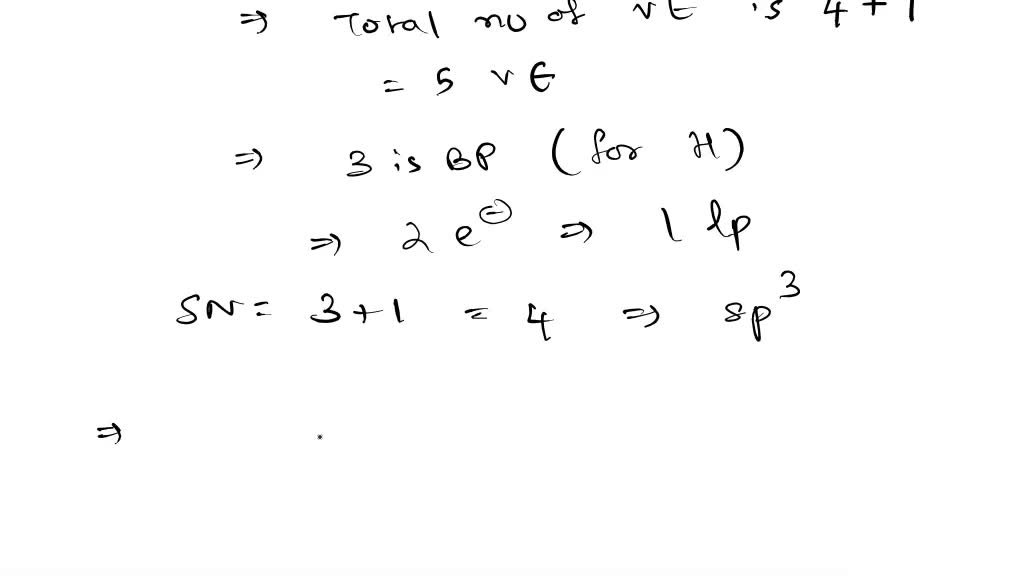 ⇒ Total no of VE is 4+1
= 5 VE
⇒ 3 is BP (for H)
⇒ 2e⊖ ⇒ 1 lp
SN = 3+1 = 4 ⇒ sp³
⇒